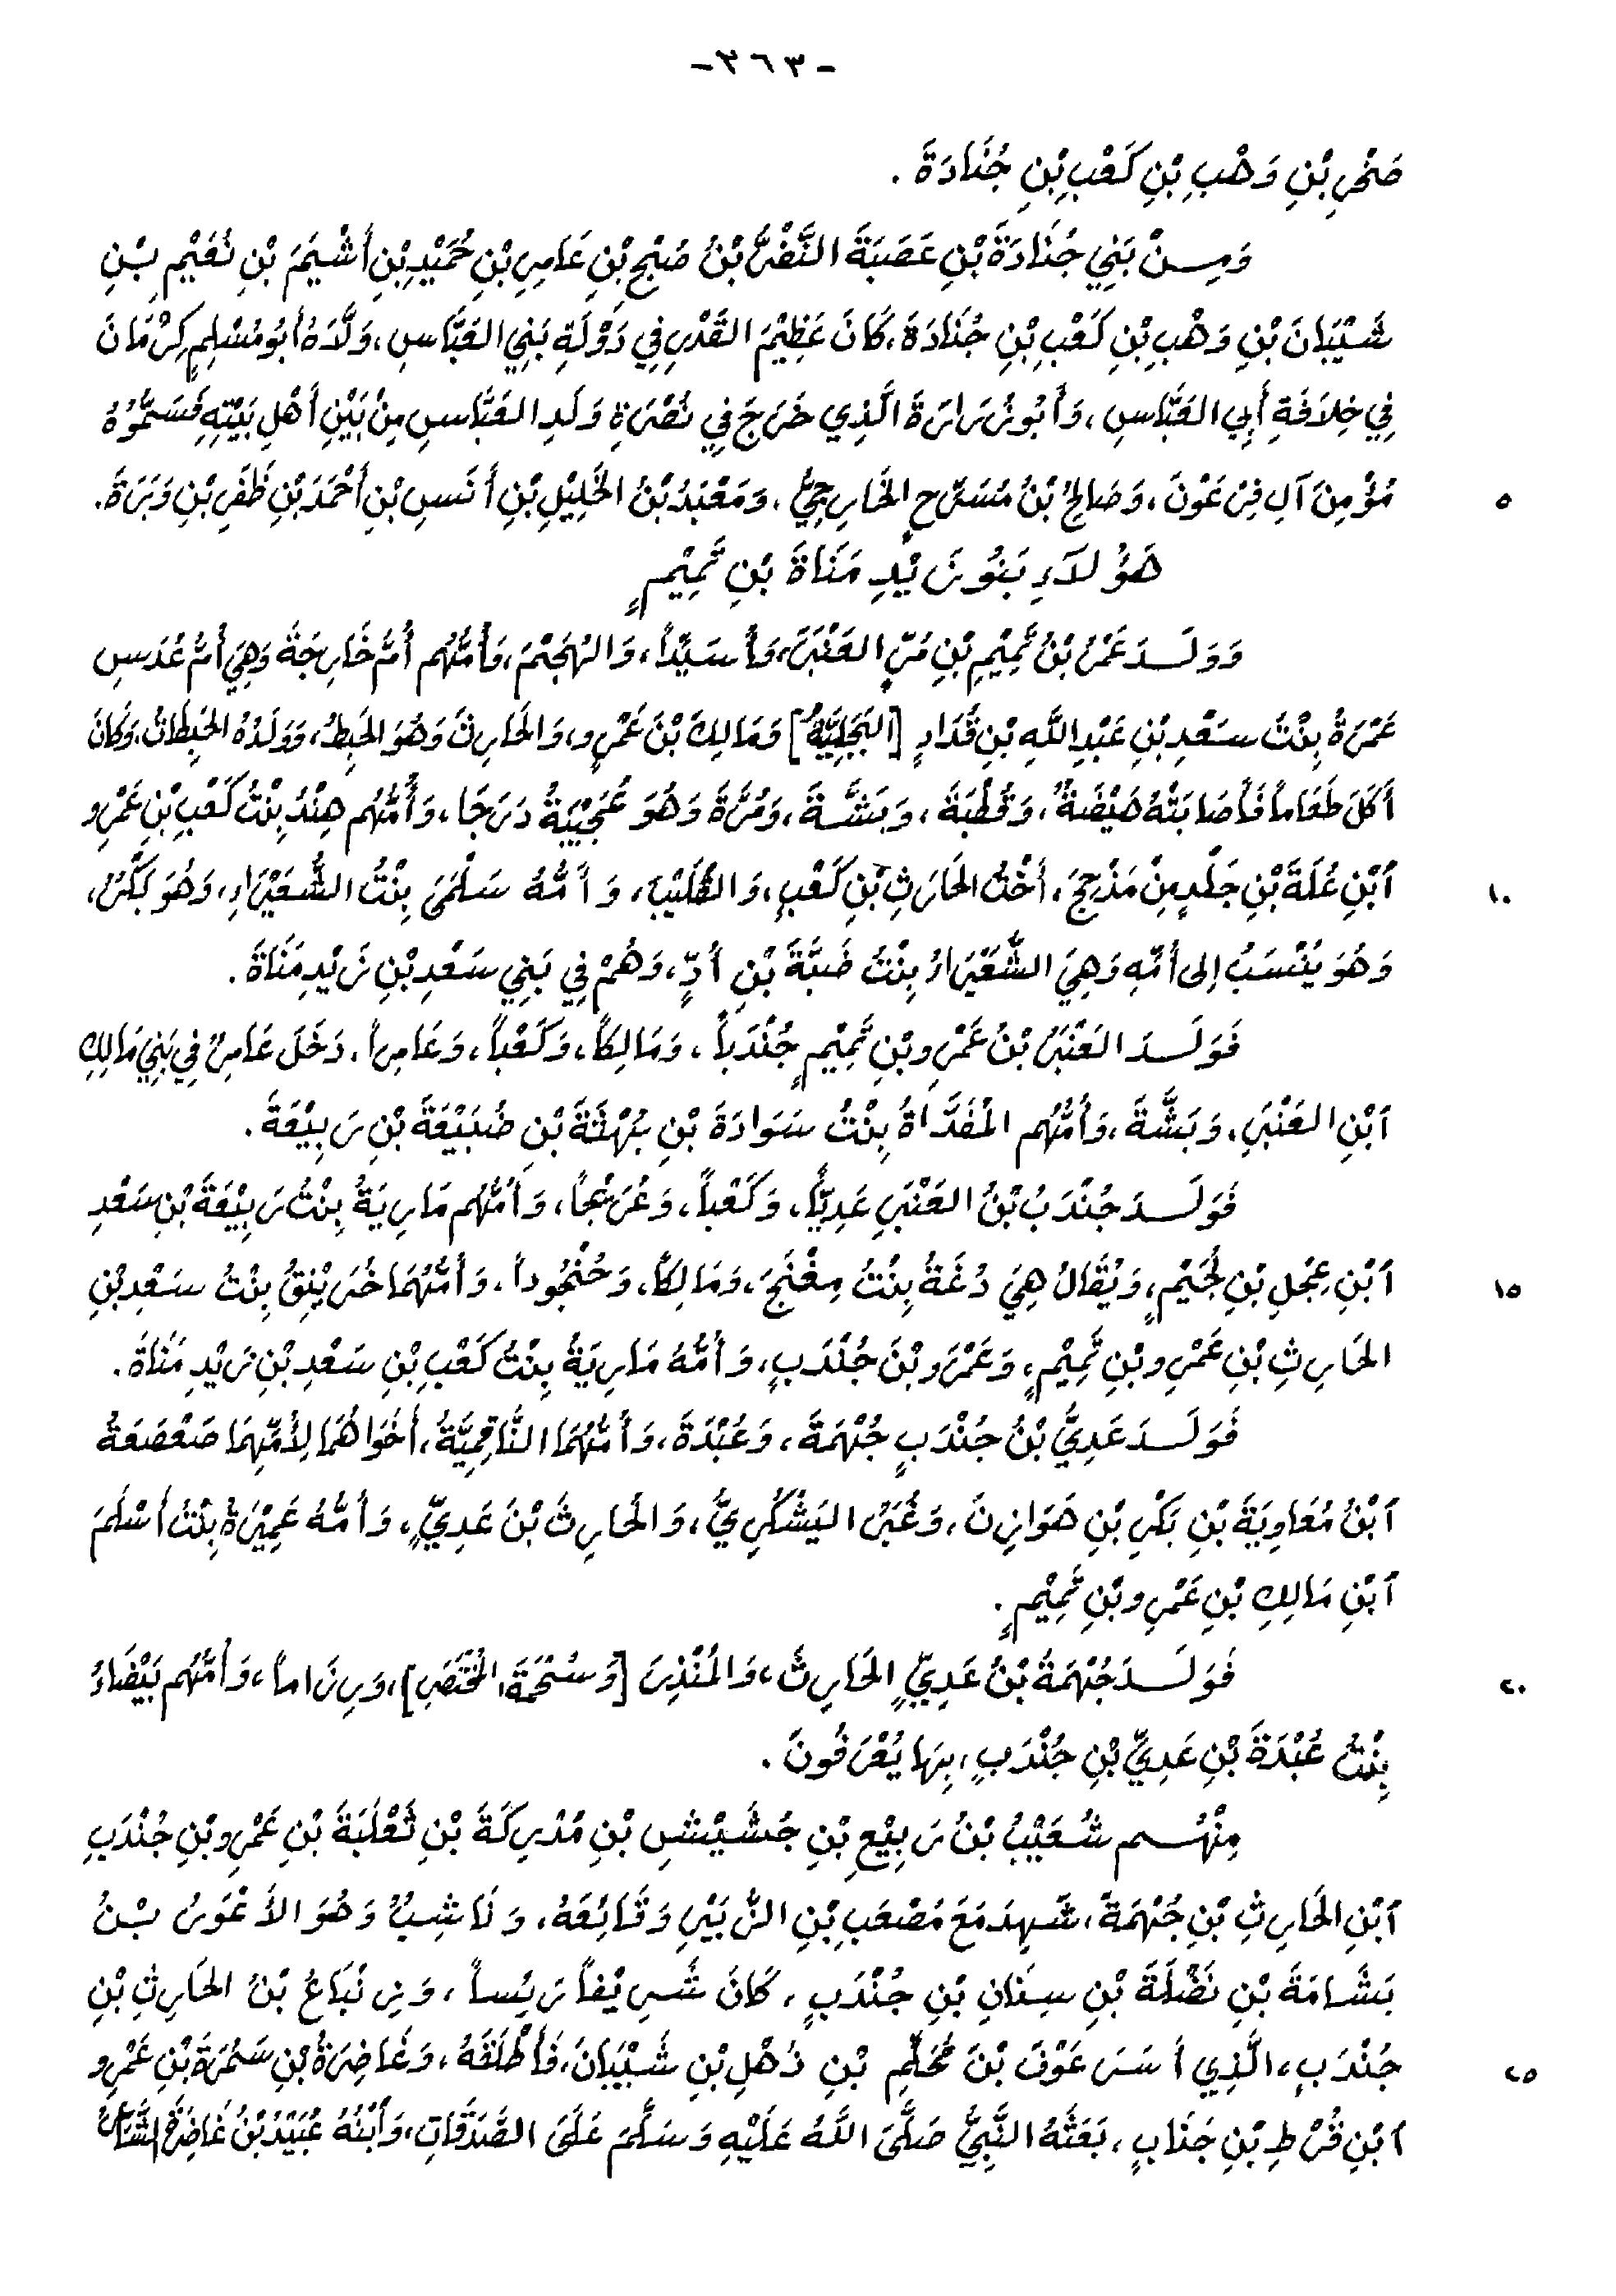 -٣٦٣-
صَخْرِ بْنِ وَهْبِ بْنِ كَعْبِ بْنِ جُنَادَةَ .
وَمِنْ بَنِي جُنَادَةَ بْنِ عَصَبَةَ النَّضْرُ بْنُ صُبْحِ بْنِ عَامِرِ بْنِ حُمَيْدِ بْنِ أَشْيَمَ بْنِ نُعَيْمِ بْنِ
شَيْبَانَ بْنِ وَهْبِ بْنِ كَعْبِ بْنِ جُنَادَةَ، كَانَ عَظِيْمَ القَدْرِ فِي دَوْلَةِ بَنِي العَبَّاسِ، وَلَّدَهُ أَبُو مُسْلِمٍ كِرْمَانَ
فِي خِلَافَةِ أَبِي العَبَّاسِ، وَأَبُو زُرَارَةَ الَّذِي خَرَجَ فِي نُصْرَةِ وَلَدِ العَبَّاسِ مِنْ بَيْنِ أَهْلِ بَيْتِهِ فَسَمَّوْهُ
مُؤْمِنَ آلِ فِرْعَوْنَ، وَصَالِحُ بْنُ مُسَرَّحٍ الخَارِجِيُّ، وَمَعْبَدُ بْنُ الخَلِيْلِ بْنِ أَنَسِ بْنِ أَحْمَدَ بْنِ ظَفَرِ بْنِ وَبَرَةَ. ٥
هَؤُلَاءِ بَنُو زَيْدِ مَنَاةَ بْنِ تَمِيْمٍ
وَوَلَدَ عَمْرُ بْنُ تَمِيْمِ بْنِ مُرٍّ العَنْبَرَ، وَأُسَيِّداً، وَالهُجَيْمَ، وَأُمُّهُم أُمُّ خَارِجَةَ وَهِيَ أُمُّ عُدَسِ
عَمْرَةُ بِنْتَ سَعْدِ بْنِ عَبْدِ اللَّهِ بْنِ قُدَادٍ [البَجَلِيَّةُ] وَمَالِكَ بْنَ عَمْرٍو، وَالحَارِثَ وَهُوَ الحَبِطُ، وَوَلَدُهُ الحَبِطَاتُ، وَكَانَ
أَكَلَ طَعَاماً فَأَصَابَتْهُ هَيْضَةٌ، وَقُطْبَةَ، وَبَشَّةَ، وَمُرَّةَ وَهُوَ عُجَيْبَةُ دَرَجَا، وَأُمُّهُم هِنْدُ بِنْتُ كَعْبِ بْنِ عَمْرِو
ٱبْنِ عُلَةَ بْنِ جَلْدٍ مِنْ مَذْحِجَ، أُخْتُ الحَارِثِ بْنِ كَعْبٍ، وَالكُلَيْبَ، وَأُمُّهُ سَلْمَى بِنْتُ الشُّعَيْرَاءِ، وَهُوَ بَكْرٌ، ١٠
وَهُوَ يُنْسَبُ إلى أُمِّهِ وَهِيَ الشُّعَيْرَاءُ بِنْتُ ضَبَّةَ بْنِ أُدٍّ، وَهُمْ فِي بَنِي سَعْدِ بْنِ زَيْدِ مَنَاةَ .
فَوَلَدَ العَنْبَرُ بْنُ عَمْرِو بْنِ تَمِيْمٍ جُنْدَباً، وَمَالِكاً، وَكَعْباً، وَعَامِراً، دَخَلَ عَامِرٌ فِي بَنِي مَالِكِ
ٱبْنِ العَنْبَرِ، وَبَشَّةَ، وَأُمُّهُم المُفَدَّاةُ بِنْتُ سَوَادَةَ بْنِ بُهْثَةَ بْنِ ضُبَيْعَةَ بْنِ رَبِيْعَةَ .
فَوَلَدَ جُنْدَبُ بْنُ العَنْبَرِ عَدِيّاً، وَكَعْباً، وَعُرَيْجاً، وَأُمُّهُم مَارِيَةُ بِنْتُ رَبِيْعَةَ بْنِ سَعْدِ
ٱبْنِ عِجْلِ بْنِ لُجَيْمٍ، وَيُقَالُ هِيَ دُغَةُ بِنْتُ مِغْنَجَ، وَمَالِكاً، وَحُنْجُوداً، وَأُمُّهُمَا خُرَيْنِقُ بِنْتُ سَعْدِ بْنِ ١٥
الحَارِثِ بْنِ عَمْرِو بْنِ تَمِيْمٍ، وَعَمْرَو بْنَ جُنْدَبٍ، وَأُمُّهُ مَارِيَةُ بِنْتُ كَعْبِ بْنِ سَعْدِ بْنِ زَيْدِ مَنَاةَ .
فَوَلَدَ عَدِيُّ بْنُ جُنْدَبٍ جُهْمَةَ، وَعُبْدَةَ، وَأُمُّهُمَا النَّاقِمِيَّةُ، أَخَوَاهُمَا لِأُمِّهِمَا صَعْصَعَةُ
ٱبْنُ مُعَاوِيَةَ بْنِ بَكْرِ بْنِ هَوَازِنَ، وَغُبَرُ اليَشْكُرِيُّ، وَالحَارِثَ بْنَ عَدِيٍّ، وَأُمُّهُ عَمِيْرَةُ بِنْتُ أَسْلَمَ
ٱبْنِ مَالِكِ بْنِ عَمْرِو بْنِ تَمِيْمٍ .
فَوَلَدَ جُهْمَةُ بْنُ عَدِيٍّ الحَارِثَ، وَالمُنْذِرَ [وَسُحْمَةَ، المُخْتَصَرِ]، وَرِزَاماً، وَأُمُّهُم بَيْضَاءُ ٢٠
بِنْتُ عُبْدَةَ بْنِ عَدِيِّ بْنِ جُنْدَبٍ، بِهَا يُعْرَفُونَ .
مِنْهُم شُعَيْبُ بْنُ رَبِيْعِ بْنِ جُشَيْشِ بْنِ مُدْرِكَةَ بْنِ ثَعْلَبَةَ بْنِ عَمْرِو بْنِ جُنْدَبِ
ٱبْنِ الحَارِثِ بْنِ جُهْمَةَ، شَهِدَ مَعَ مُصْعَبِ بْنِ الزُّبَيْرِ وَقَائِعَهُ، وَنَاشِبٌ وَهُوَ الأَعْوَرُ بْنُ
بَشَامَةَ بْنِ نَضْلَةَ بْنِ سِنَانِ بْنِ جُنْدَبٍ، كَانَ شَرِيْفاً رَئِيساً، وَزِنْبَاعُ بْنُ الحَارِثِ بْنِ
جُنْدَبٍ، الَّذِي أَسَرَ عَوْفَ بْنَ مُحَلِّمِ بْنِ ذُهْلِ بْنِ شَيْبَانَ، فَأَطْلَقَهُ، وَغَاضِرَةُ بْنِ سَمُرَةَ بْنِ عَمْرِو ٢٥
ٱبْنِ قُرْطِ بْنِ جَنَابٍ، بَعَثَهُ النَّبِيُّ صَلَّى اللَّهُ عَلَيْهِ وَسَلَّمَ عَلَى الصَّدَقَاتِ، وَٱبْنُهُ عُبَيْدُ بْنُ غَاضِرَةَ الشَّاعِرُ